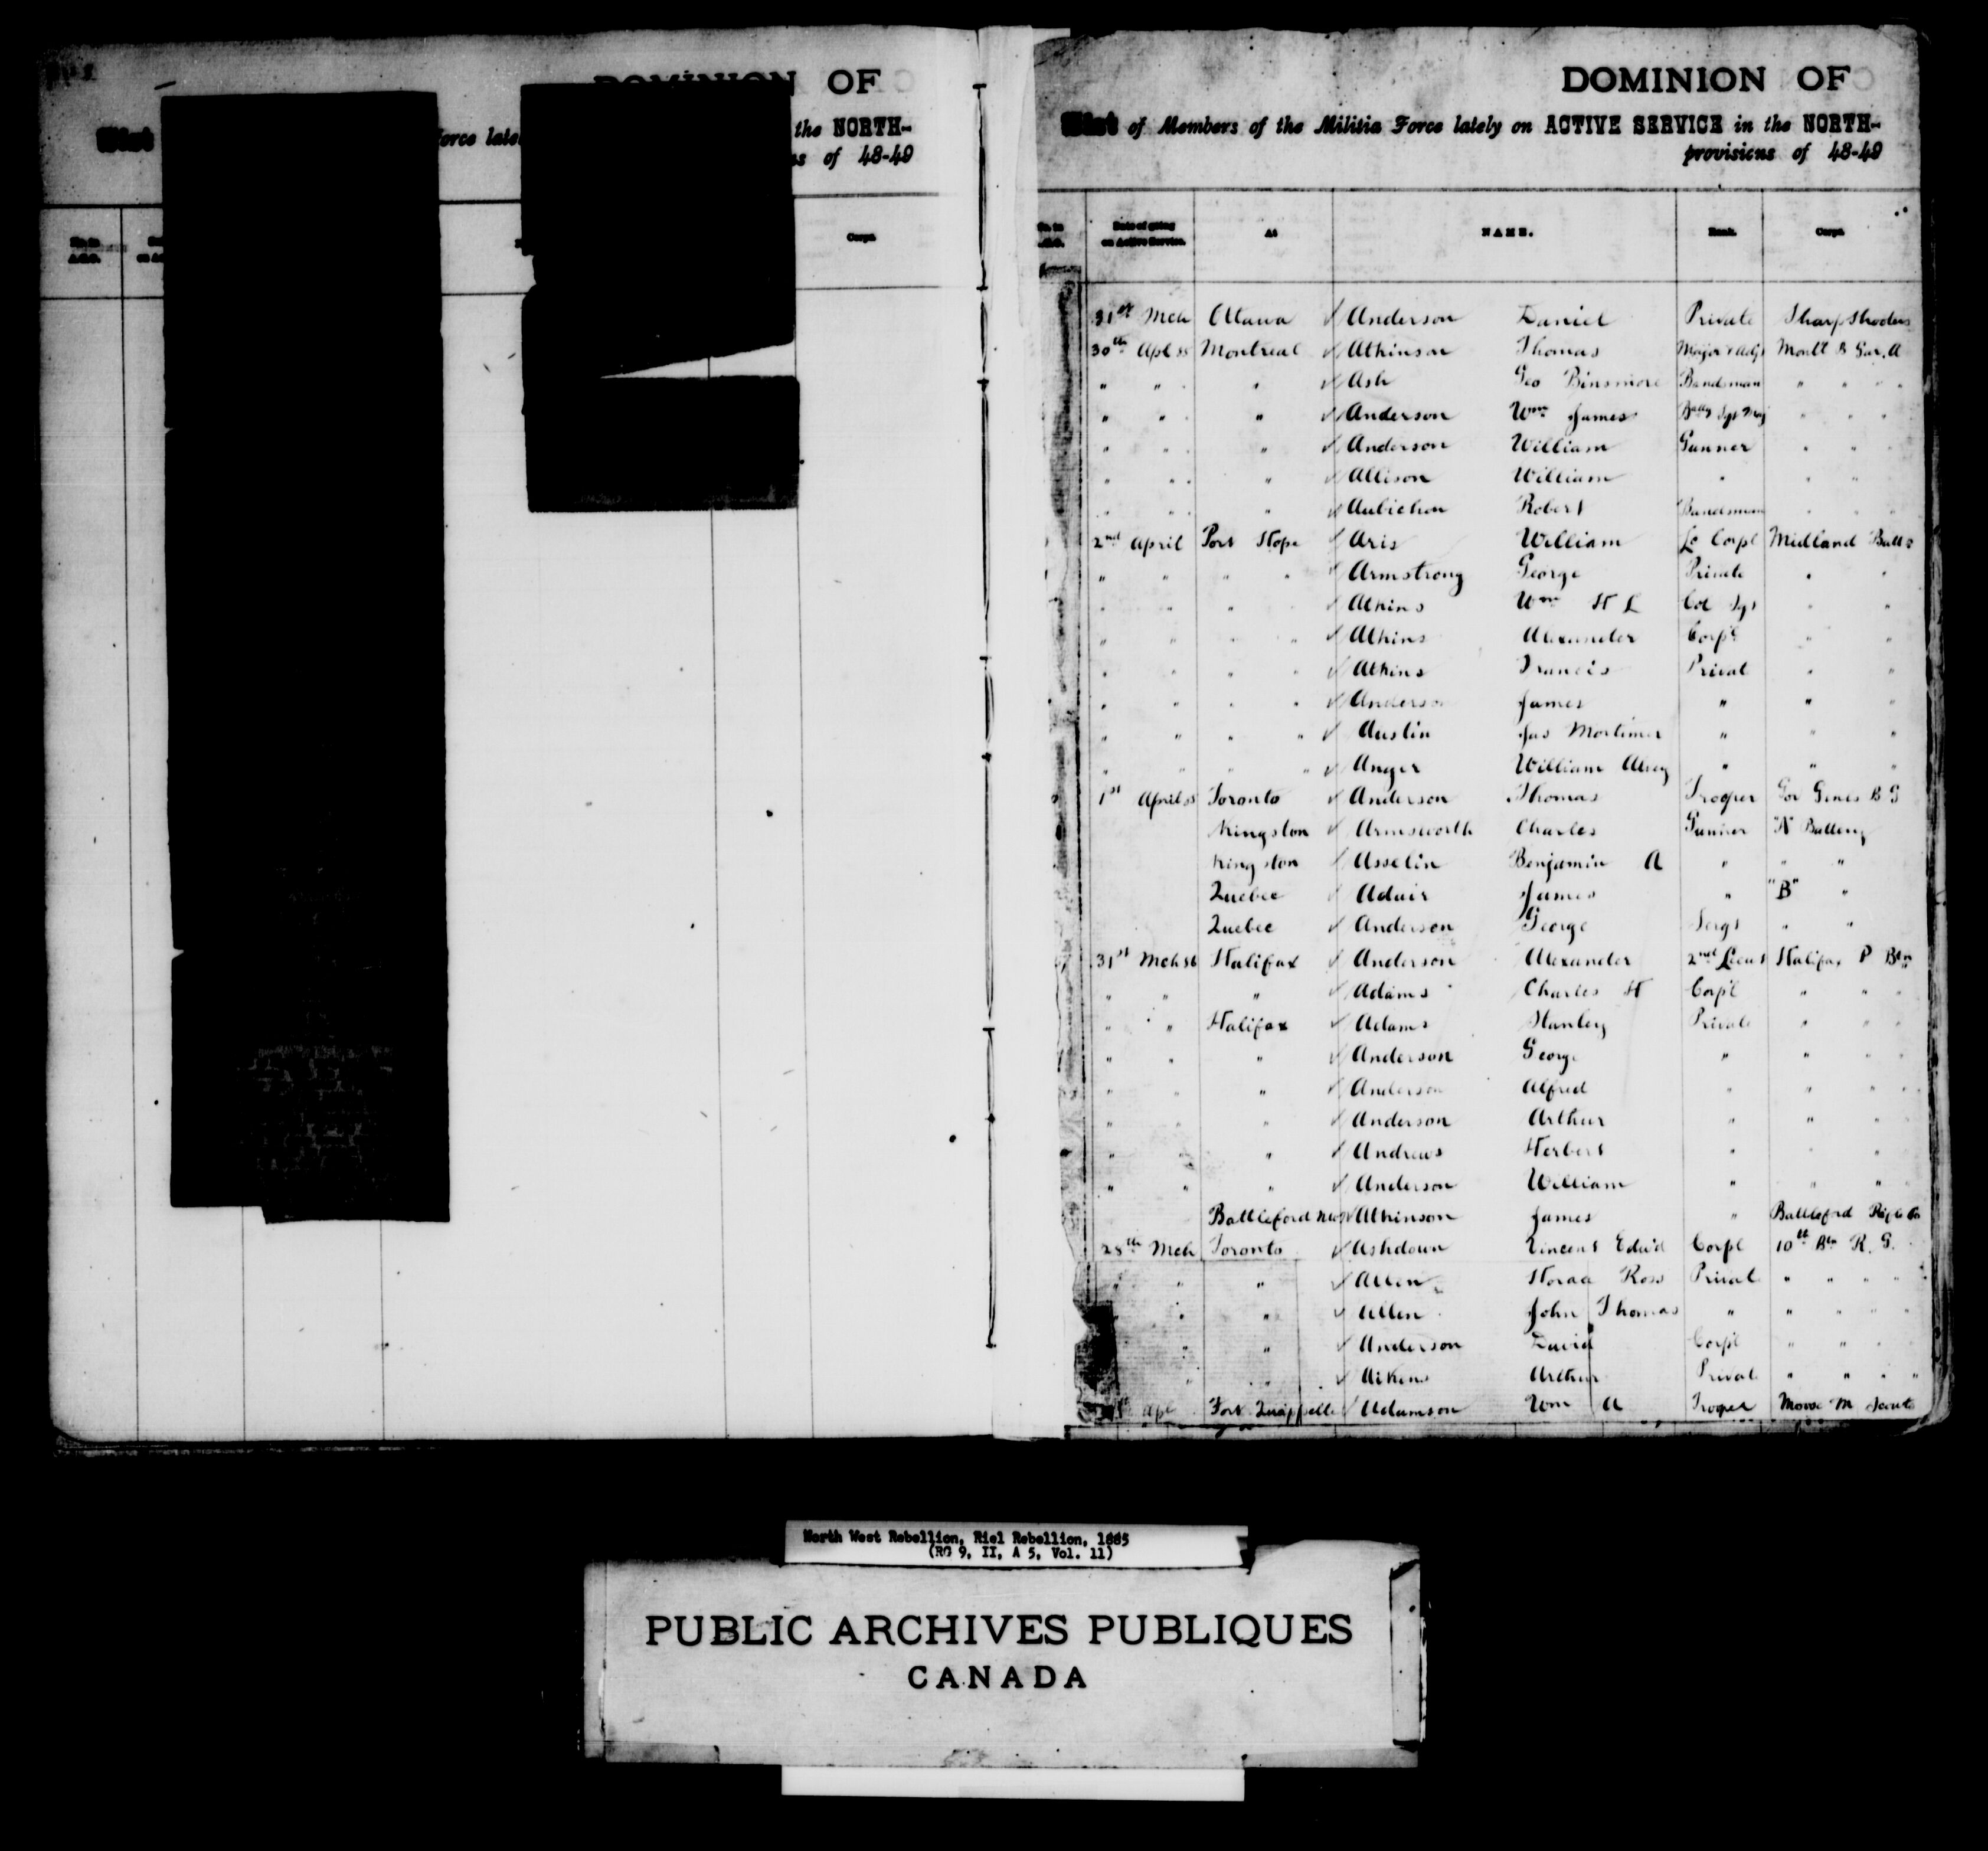 DOMINION OF
List
orce late
the NORTH-
s of 48-49
No. in
A.G.O.
Corps.
DOMINION OF
List of Members of the Militia Force lately on ACTIVE SERVICE in the NORTH-
provisions of 48-49
Date of going on Active Service. At NAME. Rank. Corps.
31st Mch Ottawa Anderson Daniel Private Sharpshooters
30th Apl 85 Montreal Atkinson Thomas Major & Adjt Montl B Gar. A
" " " Ash Geo Binsmore Bandsman " " " "
" " " Anderson Wm James Batty Sgt Maj " " "
" " " Anderson William Gunner " " "
" " " Allison William " " "
" " " Aubichon Robert Bandsman " " "
2nd April Port Hope Aris William Lc Corpl Midland Battn
" " " " Armstrong George Private " "
" " " " Atkins Wm H L Col Sgt " "
" " " " Atkins Alexander Corpl " "
" " " " Atkins Francis Privat " "
" " " " Anderson James " " "
" " " " Austin Jas Mortimer " " "
" " " " Anger William " " "
1st April 85 Toronto Anderson Thomas Trooper Gov Genls B G
Kingston Armsworth Charles Gunner "A" Battery
Kingston Asselin Benjamin A " " "
Quebec Adair James " "B" "
Quebec Anderson George Sergt " "
31st Mch Halifax Anderson Alexander 2nd Lieut Halifax P Btn
" " " Adams Charles H Corpl " " "
" " Halifax Adams Stanley Private " " "
" " " Anderson George " " " "
" " " Anderson Alfred " " " "
" " " Anderson Arthur " " " "
" " " Andrews Herbert " " "
" " " Anderson William " " "
Battleford NWT Atkinson James " Battleford Rifle Co
28th Mch Toronto Ashdown Vincent Edwd Corpl 10th Bn R. G.
" " " Allen Ross Privat " " " "
" " Allen John Thomas " " " " "
" " Anderson David Corpl " " "
" " Aikens Arthur Privat " " " "
Apl Fort Quappelle Adamson Wm A Trooper Moose M Scouts
North West Rebellion, Riel Rebellion, 1885
(RG 9, II, A 5, Vol. 11)
PUBLIC ARCHIVES PUBLIQUES
CANADA